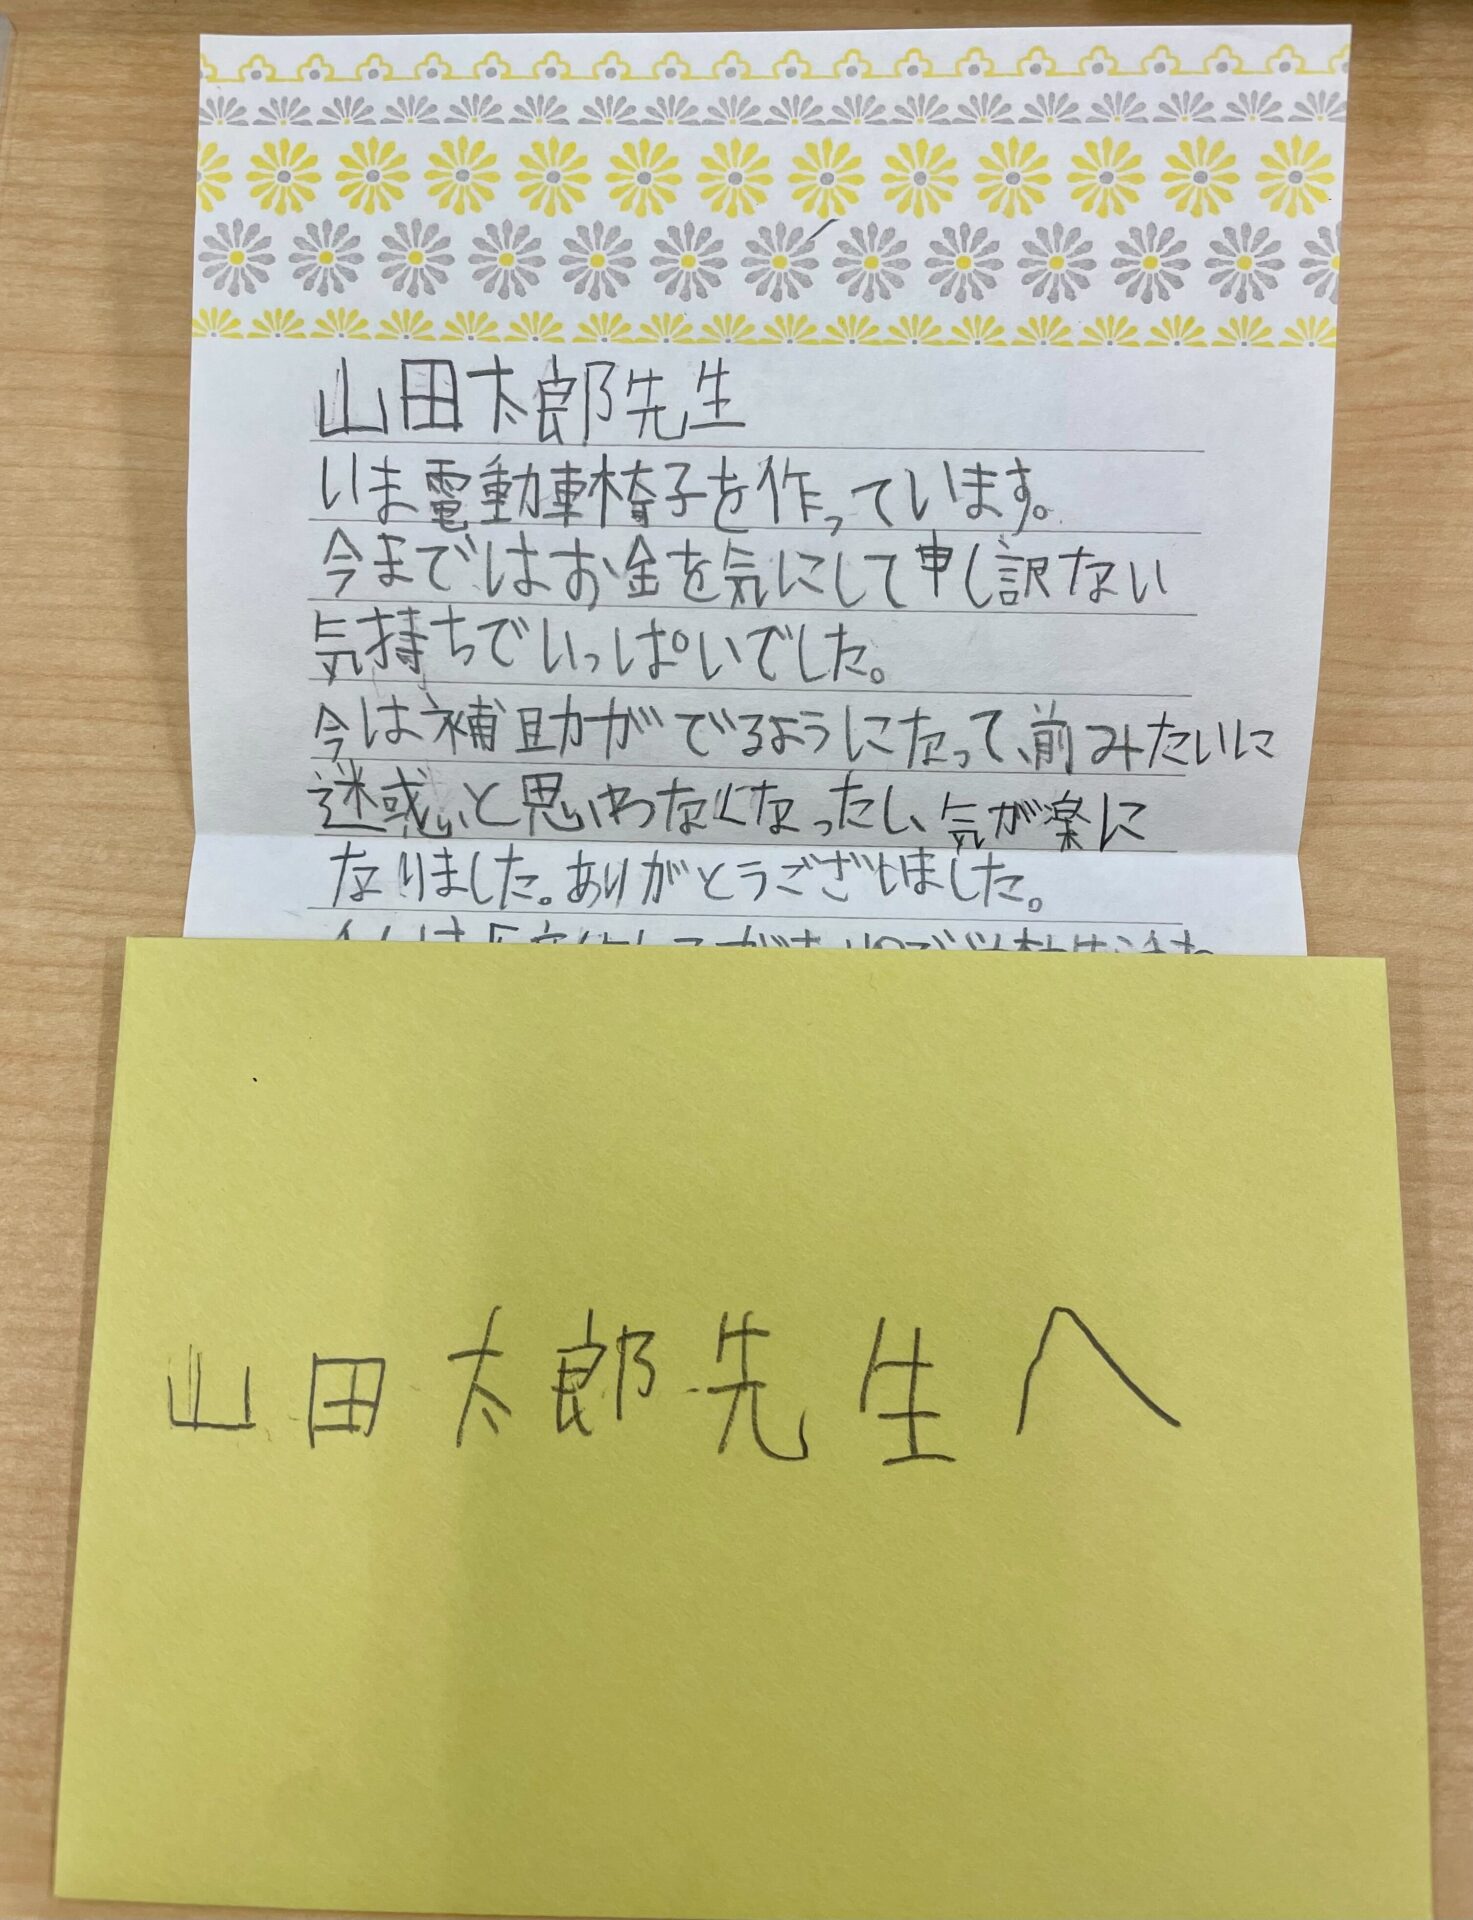 山田太郎先生
いま電動車椅子を作っています。
今まではお金を気にして申し訳ない
気持ちでいっぱいでした。
今は補助がでるようになって、前みたいに
迷惑と思いわなくなったし、気が楽に
なりました。ありがとうございました。
山田太郎先生へ